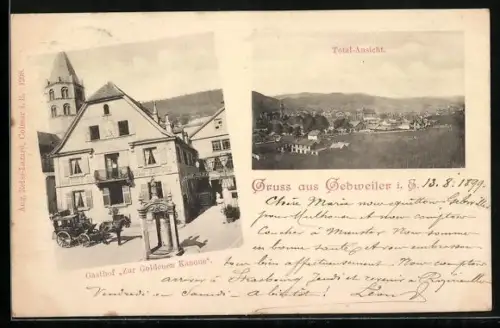 Total-Ansicht.
Aug. Buhs-Luttret, Colmar i. E. 1208.
Gruss aus Gebweiler i. E. 13.8.1899.
Gasthof „Zur Goldenen Kanone“.
Chère Marie nous quittons Gebwiller
pour Mulhouse et nous comptons
coucher à Munster Nous sommes
en bonne santé et nous embrassons
tous bien affectueusement. Nous comptons
arriver à Strasbourg Jeudi et revenir à
Vendredi ou Samedi - a bientôt! Léon